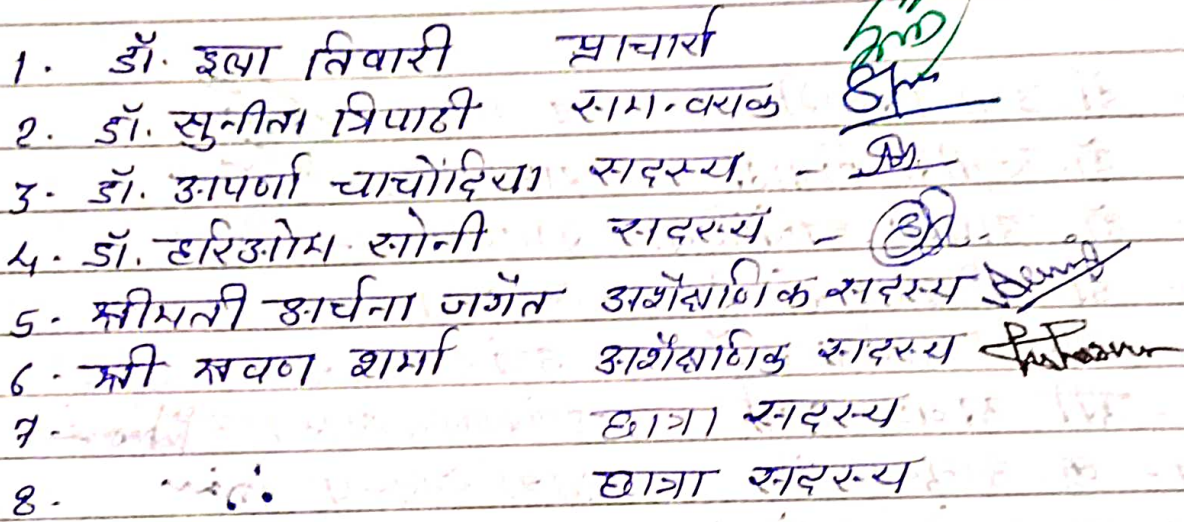 1. डॉ. इला तिवारी प्राचार्य
2. डॉ. सुनीता त्रिपाठी समन्वयक
3. डॉ. अपर्णा चाचोंदिया सदस्य -
4. डॉ. हरिओम सोनी सदस्य -
5. श्रीमती अर्चना जगेत अशैक्षणिक सदस्य
6. श्री श्रवण शर्मा अशैक्षणिक सदस्य
7. छात्रा सदस्य
8. छात्रा सदस्य